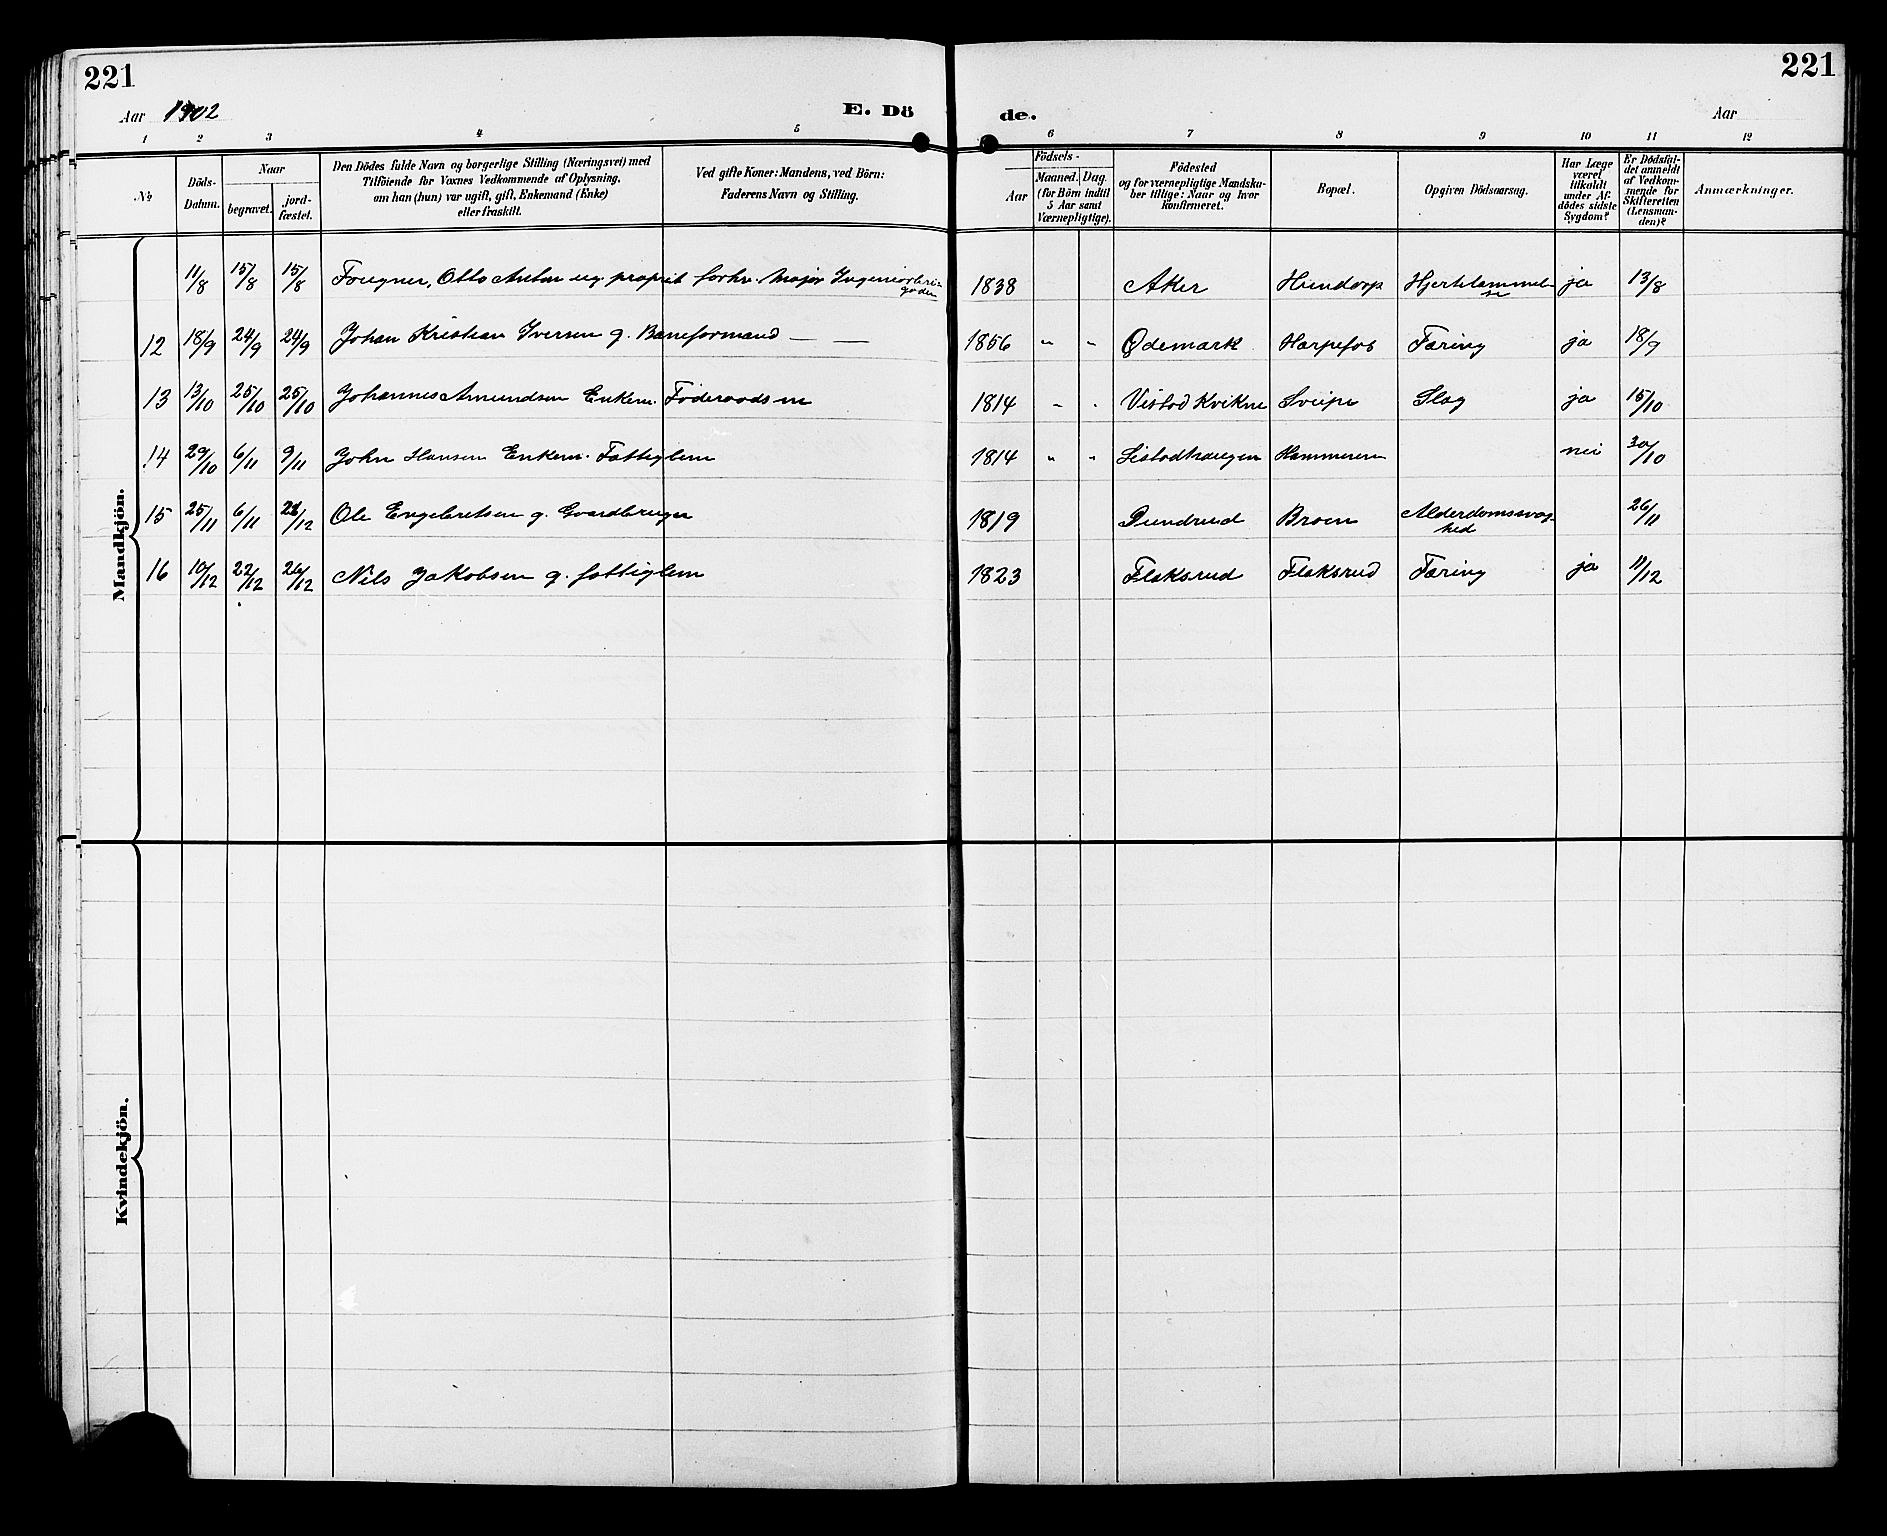 221 221
Aar 1902 E. Dö de. Aar
1 2 3 4 5 6 7 8 9 10 11 12
№
Döds-
Datum.
Naar
begravet.
jord-
fæstet.
Den Dödes fulde Navn og borgerlige Stilling (Næringsvei) med
Tilföiende for Voxnes Vedkommende af Oplysning,
om han (hun) var ugift, gift, Enkemand (Enke)
eller fraskilt.
Ved gifte Koner: Mandens, ved Börn:
Faderens Navn og Stilling.
Födsels-
Aar
Maaned. Dag.
(for Börn indtil
5 Aar samt
Værnepligtige).
Födested
og for værnepligtige Mandska-
ber tillige: Naar og hvor
konfirmeret.
Bopæl.
Opgiven Dödsaarsag.
Har Læge
været
tilkaldt
under Af-
dödes sidste
Sygdom?
Er Dödsfal-
det anmeldt
af Vedkom-
mende for
Skifteretten
(Lensman-
den)?
Anmærkninger.
Mandkjön.
11/8 15/8 15/8 Fougner, Otto Anton ug propriet forhv. Major Ingeniörbri- 1838 Aker Hundorp Hjertelammel- ja 13/8
gaden se
12 18/9 24/9 24/9 Johan Kristian Iversen g. Baneformand — — 1856 " " Ødemark Harpefos Tæring ja 18/9
13 13/10 25/10 25/10 Johannes Amundsen Enkem. Föderaadsm 1814 " " Vistad Kvikne Sveipe Slag ja 15/10
14 29/10 6/11 9/11 John Hansen Enkem. Fattiglem 1814 " " Listadhaugen Hammeren nei 30/10
15 25/11 6/11 /12 Ole Engebretsen g. Gaardbruger 1819 Pundrud Broen Alderdomssvag- 26/11
hed
16 10/12 22/12 26/12 Nils Jakobsen g. fattiglem 1823 Flaksrud Flaksrud Tæring ja 11/12
Kvindekjön.